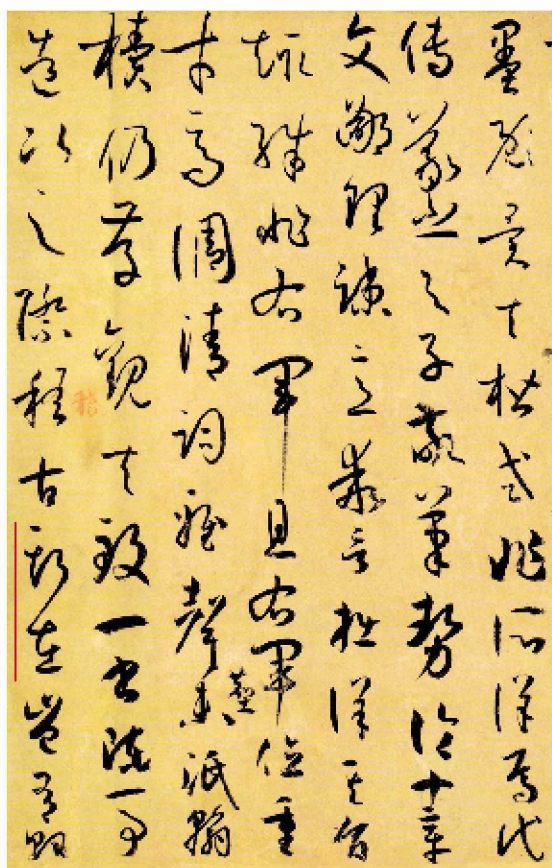 墨虧異夫楷式非所詳焉代
傳羲之與子敬筆勢論十章
文鄙理疎意乖言拙詳其旨
趣殊非右軍且右軍位重
才高調清詞雅聲塵未泯翰
牘仍存觀夫致一書陳一事
造次之際稽古斯在豈有貽